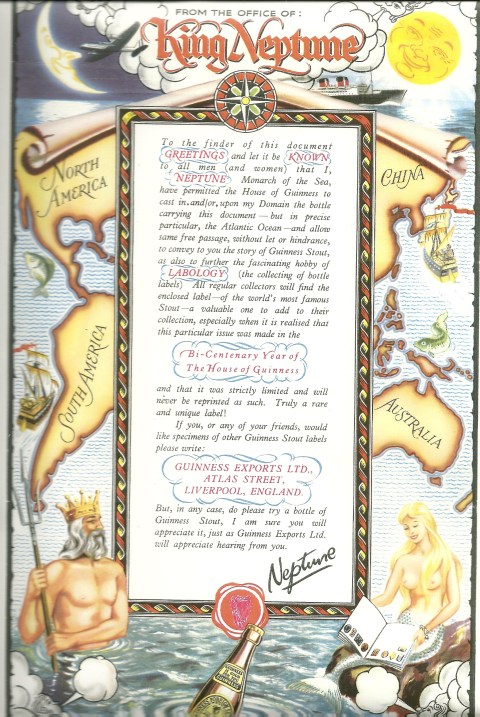 FROM THE OFFICE OF:
King Neptune
NORTH
AMERICA
CHINA
SOUTH AMERICA
AUSTRALIA
To the finder of this document
GREETINGS and let it be KNOWN,
to all men (and women) that I,
NEPTUNE Monarch of the Sea,
have permitted the House of Guinness to
cast in, and/or, upon my Domain the bottle
carrying this document—but in precise
particular, the Atlantic Ocean—and allow
same free passage, without let or hindrance,
to convey to you the story of Guinness Stout,
as also to further the fascinating hobby of
LABOLOGY (the collecting of bottle
labels) All regular collectors will find the
enclosed label—of the world's most famous
Stout—a valuable one to add to their
collection, especially when it is realised that
this particular issue was made in the
Bi-Centenary Year of
The House of Guinness
and that it was strictly limited and will
never be reprinted as such. Truly a rare
and unique label!
If you, or any of your friends, would
like specimens of other Guinness Stout labels
please write:
GUINNESS EXPORTS LTD.,
ATLAS STREET,
LIVERPOOL, ENGLAND.
But, in any case, do please try a bottle of
Guinness Stout, I am sure you will
appreciate it, just as Guinness Exports Ltd.
will appreciate hearing from you.
Neptune